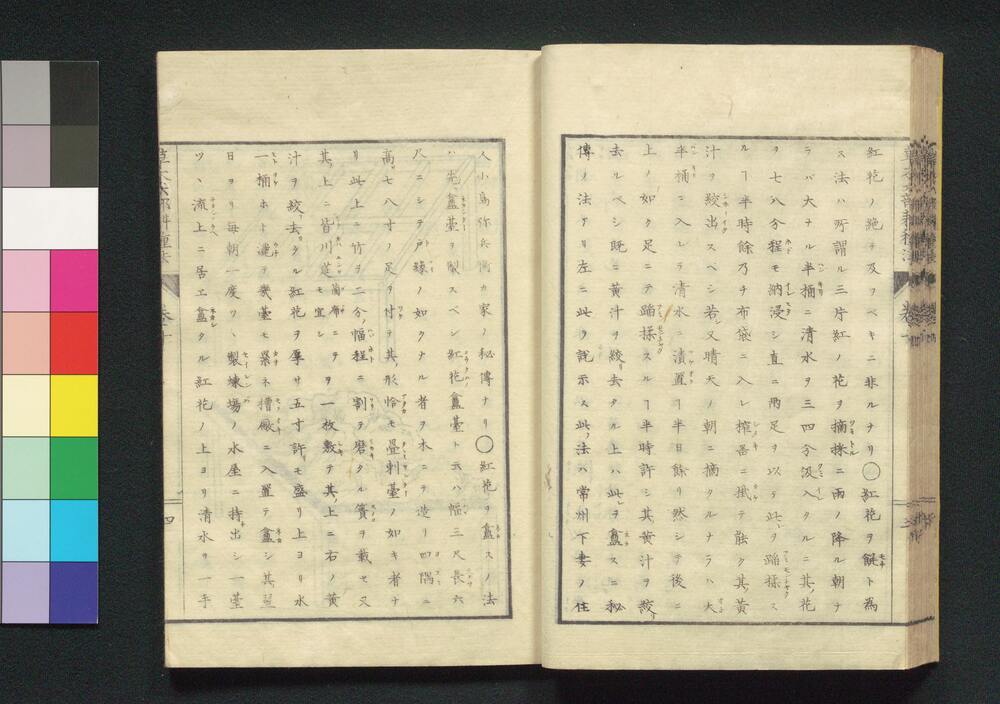 紅花ノ絶テ及フベキニ非ルナリ○紅花ヲ餅ト為
ス法ハ所謂ル三片紅ノ花ヲ摘採ニ雨ノ降ル朝ナ
ラバ大ナル半桶ニ清水ヲ三四分汲入タルニ其花
ヲ七八分程モ納浸シ直ニ兩足ヲ以テ此ヲ蹈揉ス
ルヿ半時餘乃チ布袋ニ入レ搾器ニ掛テ能ク其黄
汁ヲ絞出スベシ若シ又晴天ノ朝ニ摘タルナラハ大
半桶ニ入レテ清水ニ漬置ヿ半日餘リ然シテ後ニ
上ノ如ク足ニテ蹈揉スルヿ半時許シ其黄汁ヲ絞リ
去ルベシ既ニ黄汁ヲ絞リ去タル上ハ此ヲ盦スニ秘
傳ノ法アリ左ニ此ヲ說示ス此法ハ常州下妻ノ住
人小島弥兵衛カ家ノ秘傳ナリ○紅花ヲ盦スノ法
ハ先ツ盦臺ヲ製スベシ紅花盦臺ト云ハ幅三尺長六
尺ニシテ戸縁ノ如クナル者ヲ木ニテ造リ四隅ニ
高七八寸ノ足ヲ付テ其形恰モ疊刺臺ノ如キ者ナ
リ此上ニ竹ヲ二分幅程ニ割テ磨タル簀ヲ載セ又
其上ニ皆川莚ニテモ宜シヲ一枚敷テ其上ニ右ノ黄
汁ヲ絞去タル紅花ヲ厚サ五寸許モ盛リ上ヨリ水
一桶ホト澆テ幾臺モ累ネ槽厰ニ入置テ盦シ其翌
日ヨリ每朝一度ツヽ製煉場ノ水屋ニ持出シ一臺
ツヽ流上ニ居エ盦タル紅花ノ上ヨリ清水ヲ一手
四